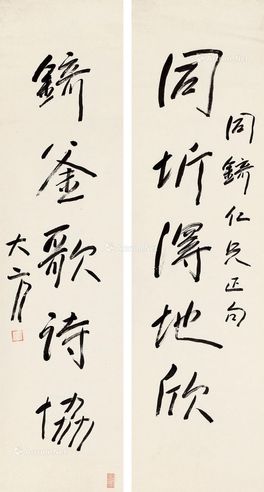 同圻得地欣
同錡仁兄正句
錡釜歌诗協
大方